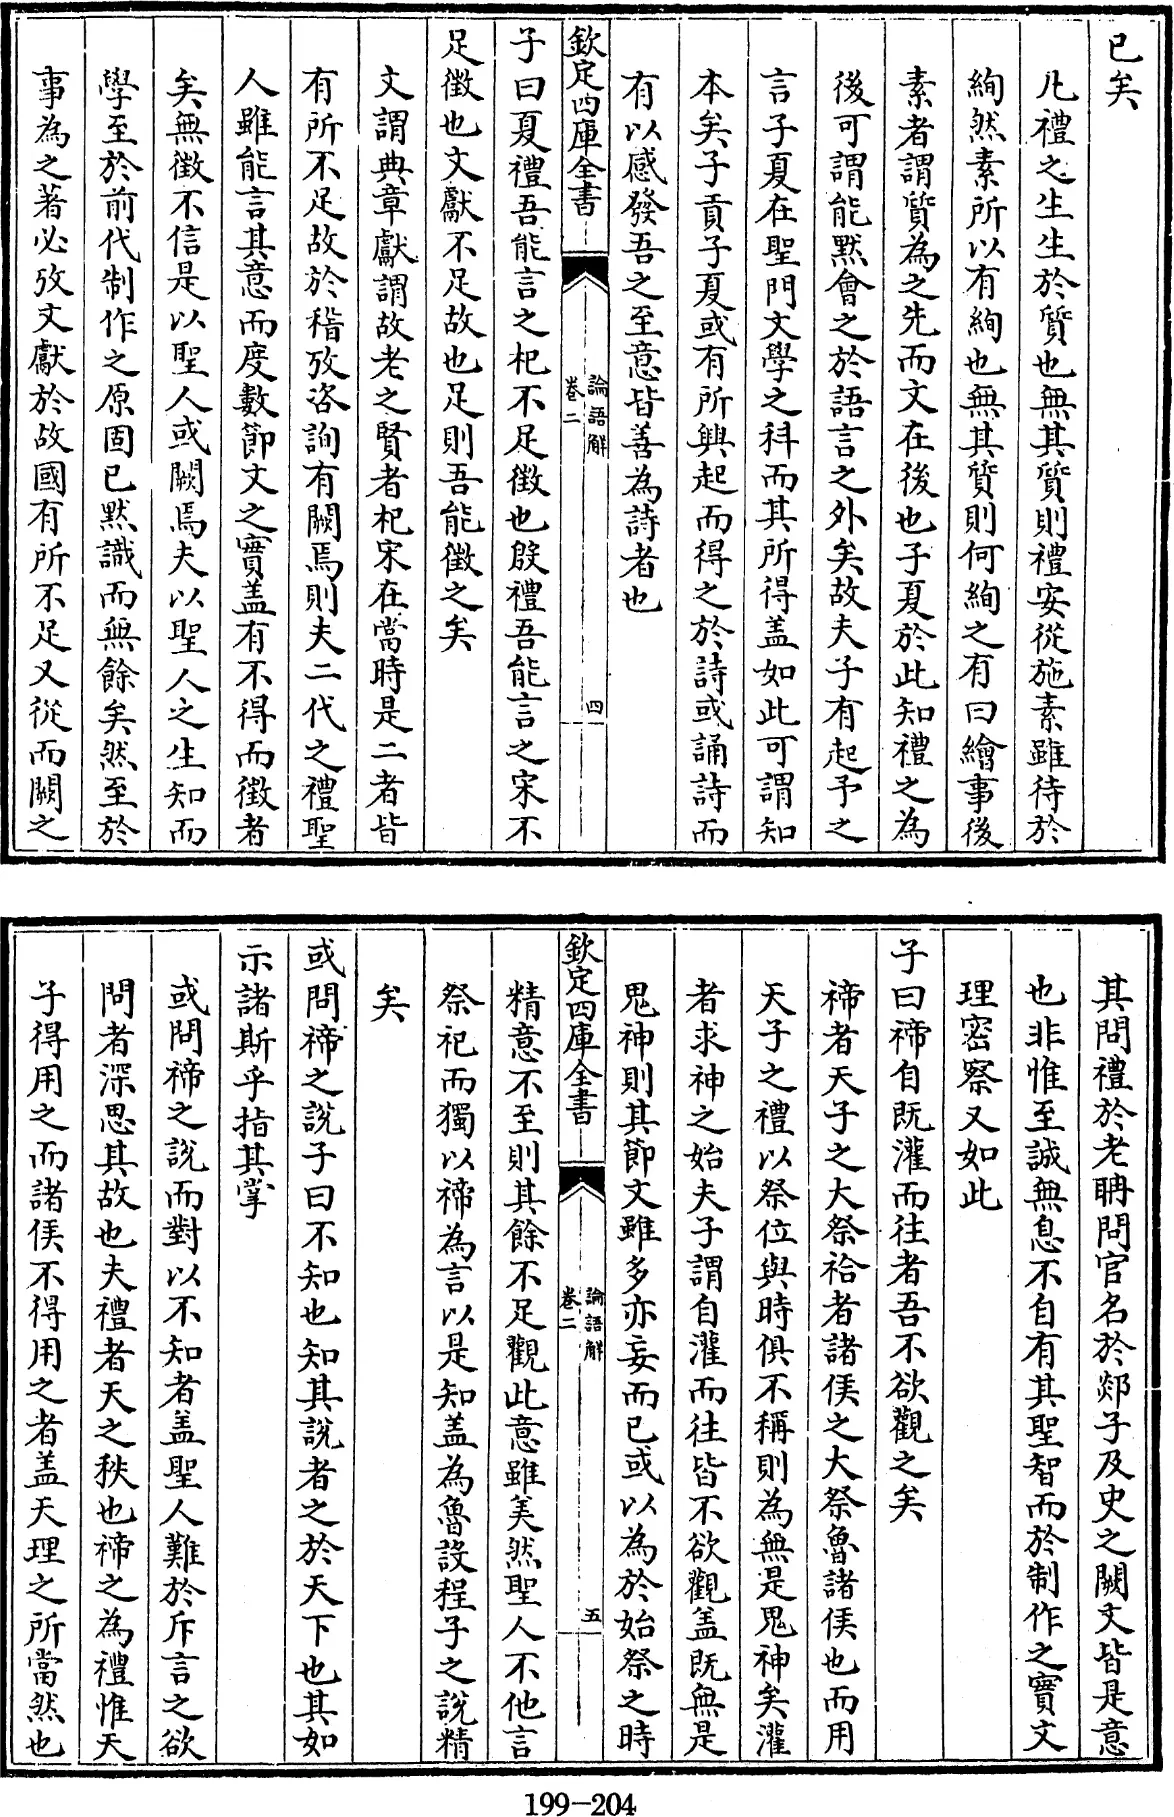 已矣
凡禮之生生於質也無其質則禮安從施素雖待於
絢然素所以有絢也無其質則何絢之有曰繪事後
素者謂質為之先而文在後也子夏於此知禮之為
後可謂能黙會之於語言之外矣故夫子有起予之
言子夏在聖門文學之科而其所得盖如此可謂知
本矣子貢子夏或有所興起而得之於詩或誦詩而
有以感發吾之至意皆善為詩者也
欽定四庫全書
論語解
卷二
四
子曰夏禮吾能言之杞不足徵也殷禮吾能言之宋不
足徵也文獻不足故也足則吾能徵之矣
文謂典章獻謂故老之賢者杞宋在當時是二者皆
有所不足故於稽攷咨詢有闕焉則夫二代之禮聖
人雖能言其意而度數節文之實盖有不得而徵者
矣無徵不信是以聖人或闕焉夫以聖人之生知而
學至於前代制作之原固已黙識而無餘矣然至於
事為之著必攷文獻於故國有所不足又從而闕之
其問禮於老聃問官名於郯子及史之闕文皆是意
也非惟至誠無息不自有其聖智而於制作之實文
理密察又如此
子曰禘自既灌而往者吾不欲觀之矣
禘者天子之大祭祫者諸侯之大祭魯諸侯也而用
天子之禮以祭位與時俱不稱則為無是鬼神矣灌
者求神之始夫子謂自灌而往皆不欲觀盖既無是
鬼神則其節文雖多亦妄而已或以為於始祭之時
欽定四庫全書
論語解
卷二
五
精意不至則其餘不足觀此意雖美然聖人不他言
祭祀而獨以禘為言以是知盖為魯設程子之說精
矣
或問禘之說子曰不知也知其說者之於天下也其如
示諸斯乎指其掌
或問禘之說而對以不知者盖聖人難於斥言之欲
問者深思其故也夫禮者天之秩也禘之為禮惟天
子得用之而諸侯不得用之者盖天理之所當然也
199-204